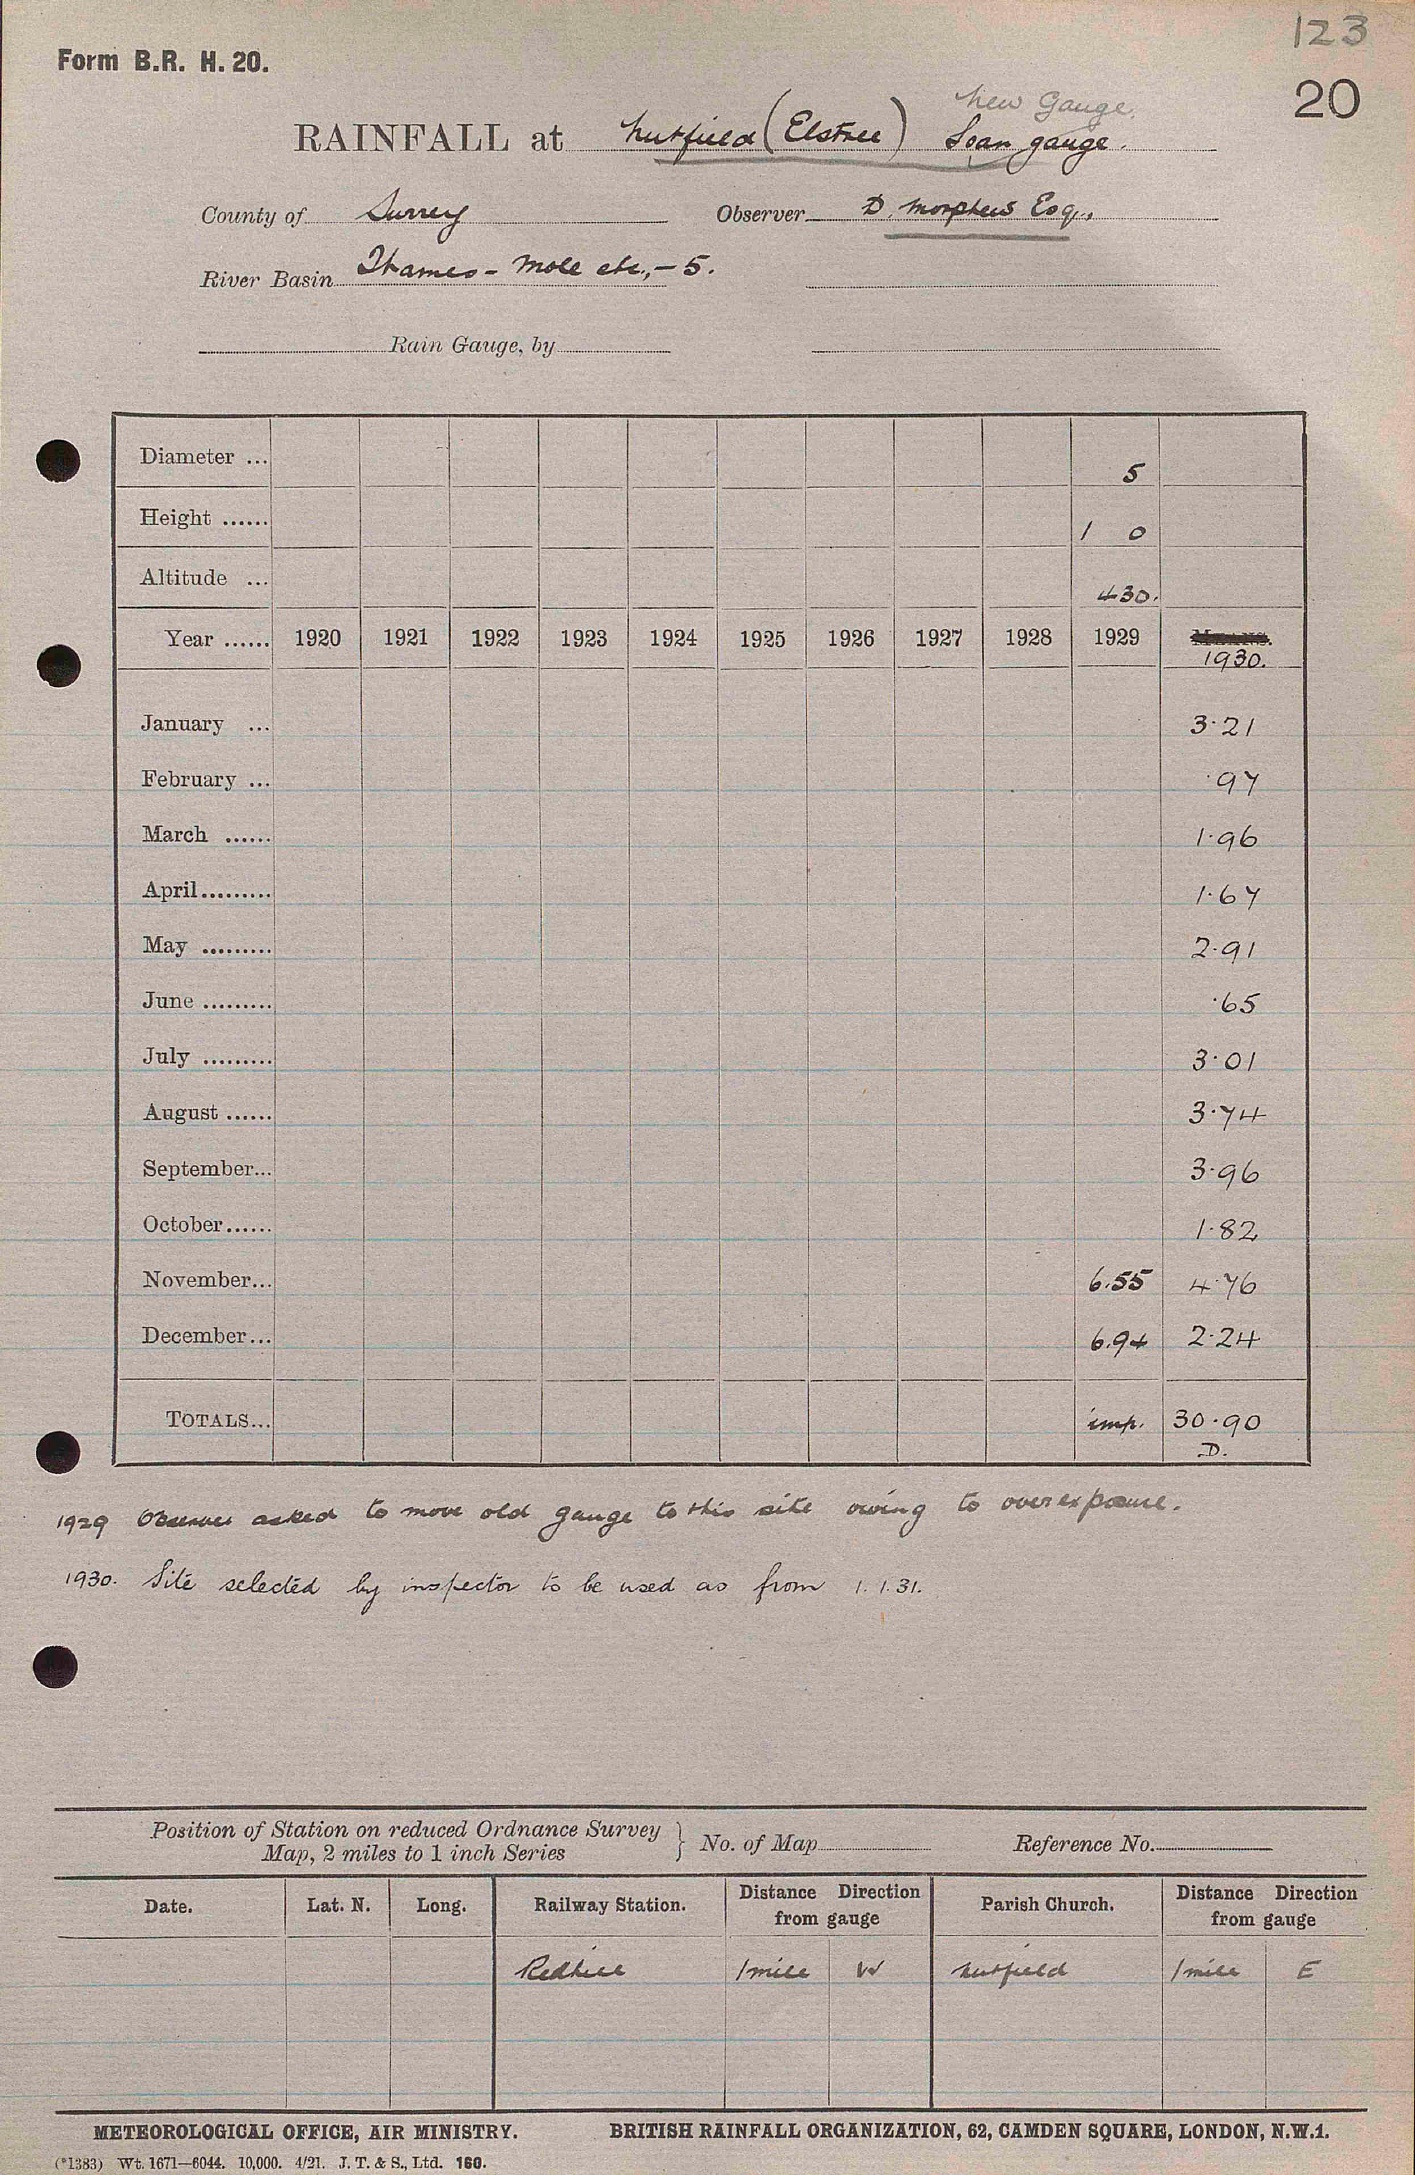 123
Form B.R. H. 20.
20
New Gauge.
RAINFALL at Nutfield (Elstree) Loan gauge.
County of Surrey Observer D. Morpheus Esq.,
River Basin Thames - Mole etc., - 5.
Rain Gauge, by
Diameter ... 5
Height ...... 1 0
Altitude ... 430.
Year ...... 1920 1921 1922 1923 1924 1925 1926 1927 1928 1929 1930.
January ... 3.21
February ... .97
March ...... 1.96
April......... 1.67
May ......... 2.91
June ......... .65
July ......... 3.01
August ...... 3.74
September... 3.96
October...... 1.82
November... 6.55 4.76
December... 6.94 2.24
TOTALS... imp. 30.90
D.
1929 Observer asked to move old gauge to this site owing to over exposure.
1930. Site selected by inspector to be used as from 1.1.31.
Position of Station on reduced Ordnance Survey
Map, 2 miles to 1 inch Series } No. of Map Reference No.
Date. Lat. N. Long. Railway Station. Distance Direction from gauge Parish Church. Distance Direction from gauge
Redhill 1 mile W Nutfield 1 mile E
METEOROLOGICAL OFFICE, AIR MINISTRY. BRITISH RAINFALL ORGANIZATION, 62, CAMDEN SQUARE, LONDON, N.W.1.
(*1383) Wt. 1671—6044. 10,000. 4/21. J. T. & S., Ltd. 160.